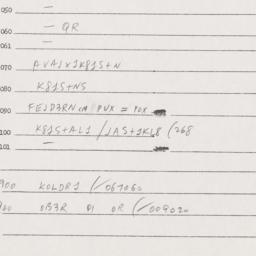 050 —
060 — QR
061 —
070 AVAJX1K81S+N
080 K81S+NS
090 FEJD3RNCM PVX = POX
100 K81S+AL1 /JAS+1KL8 (268
101 —
900 KOLDR1 (/067060
OB3R DI OR (/009020